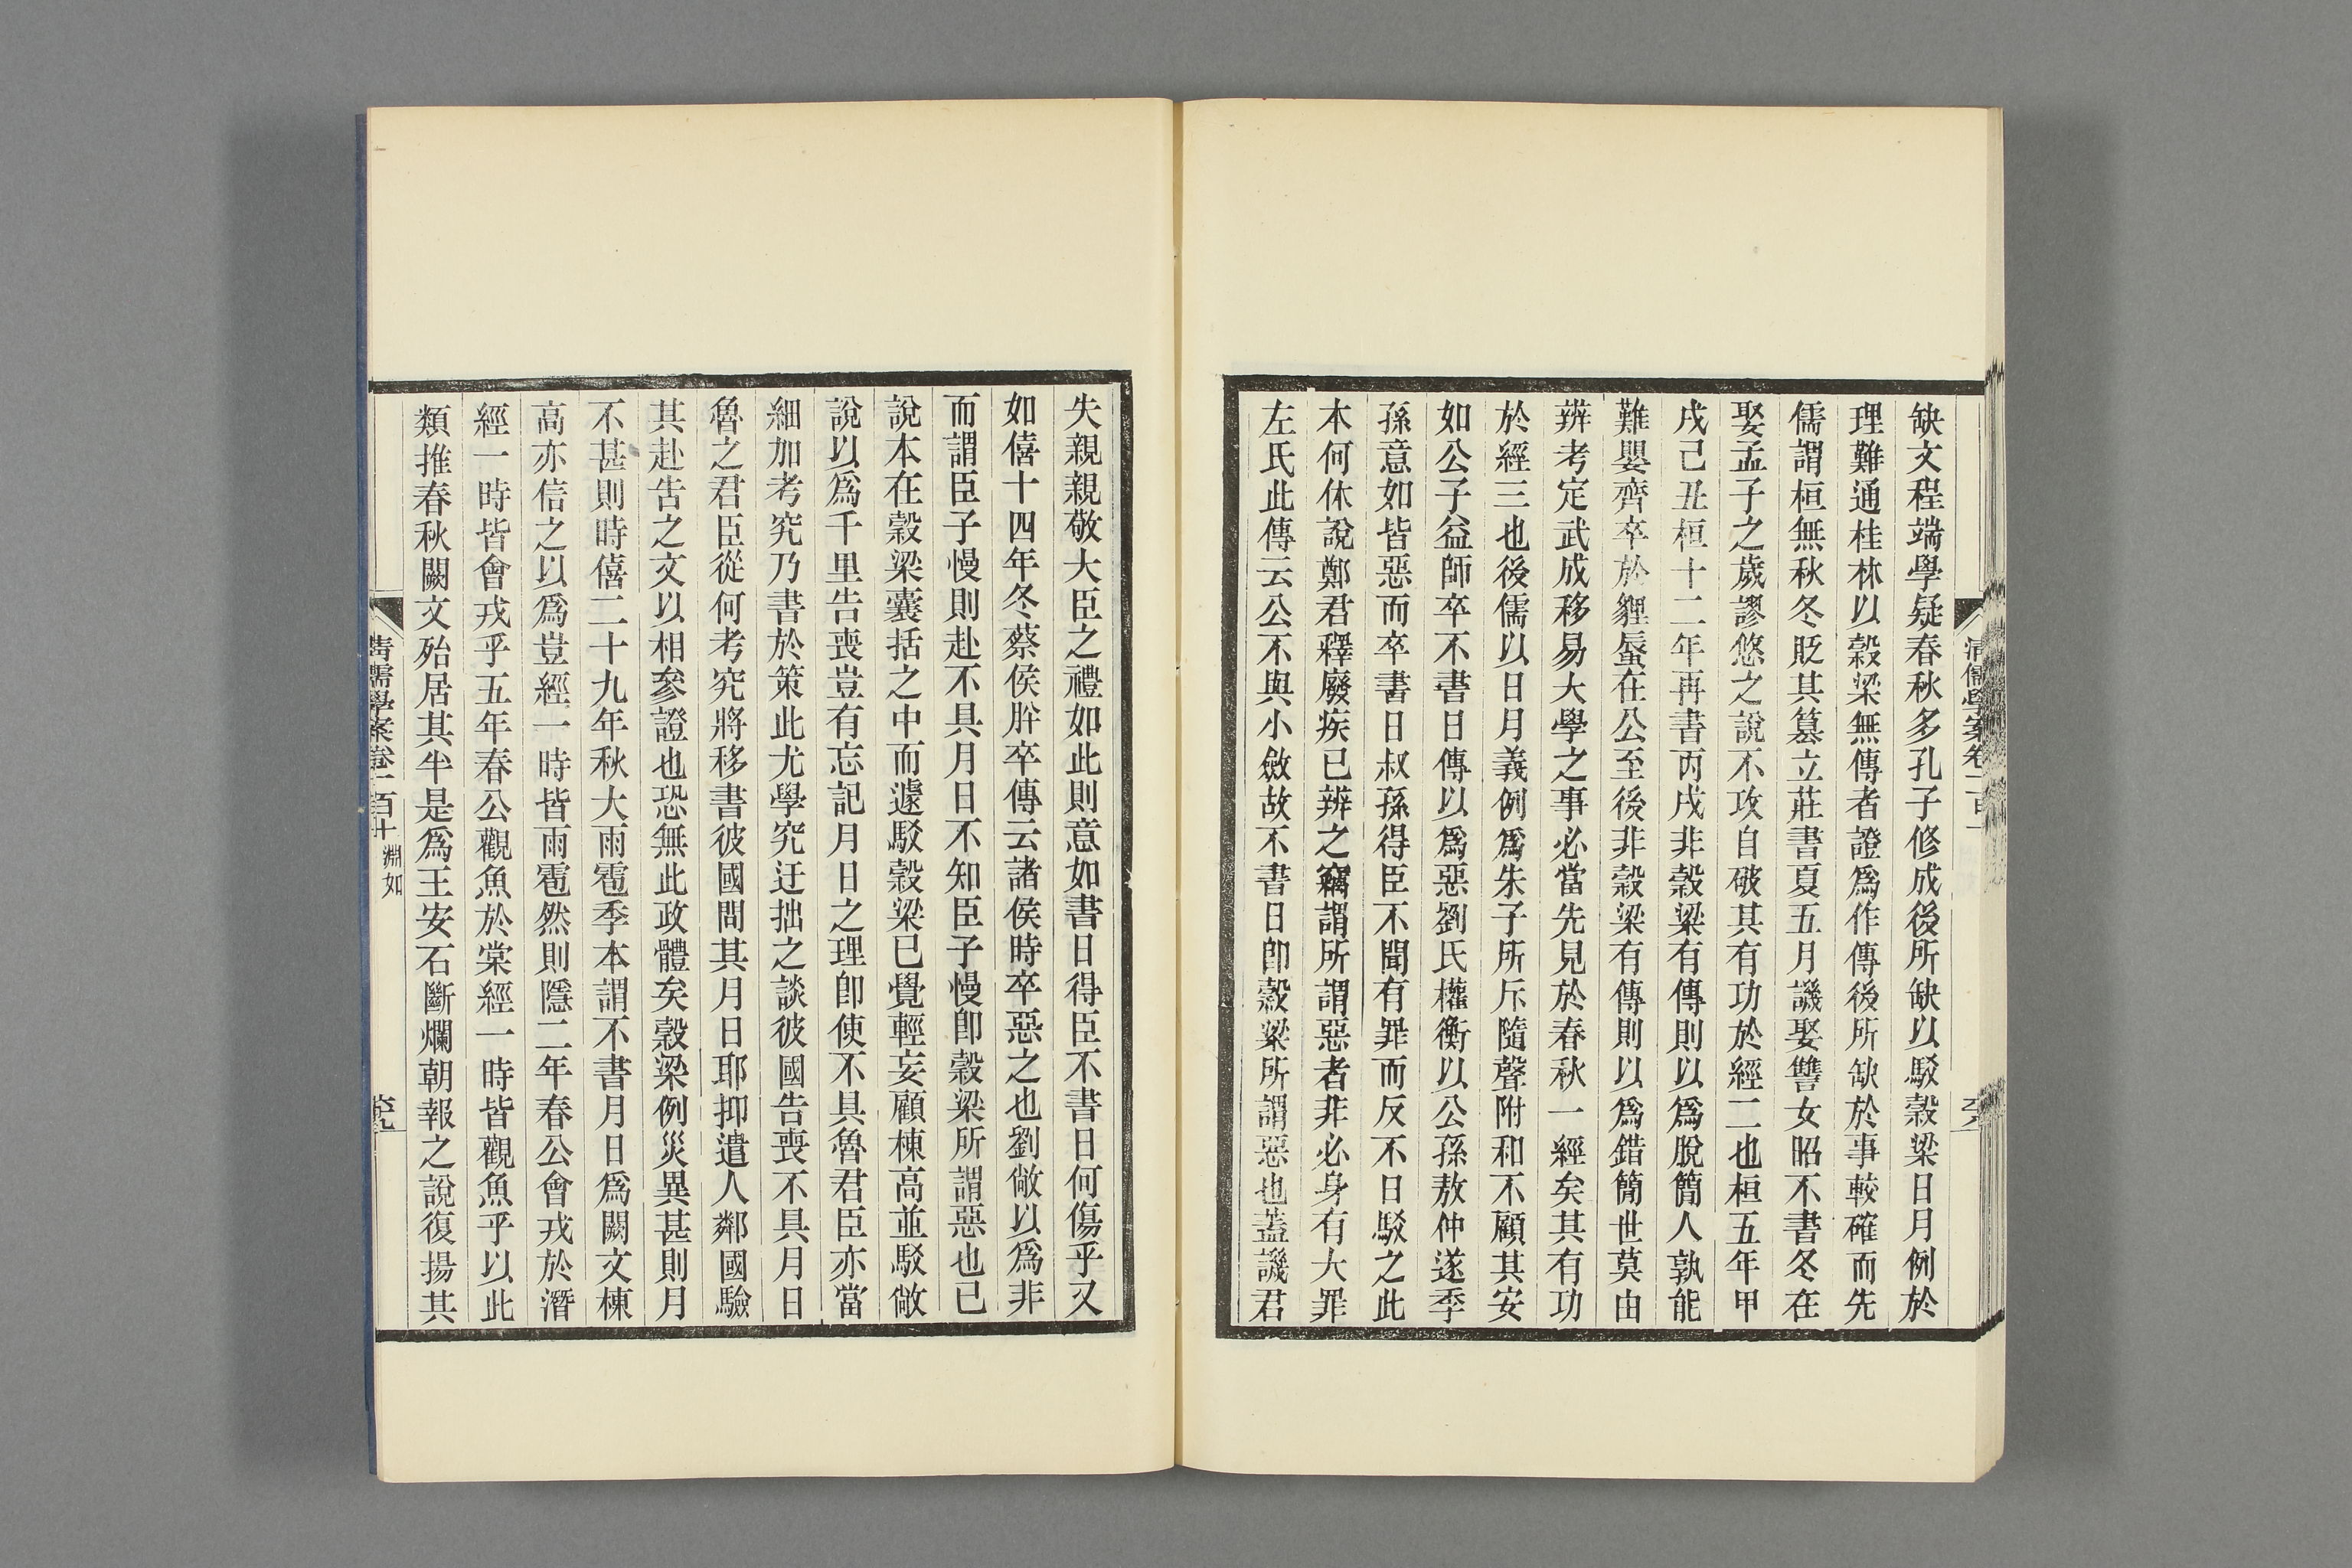 缺文程端學疑春秋多孔子修成後所缺以駁穀梁日月例於
理難通桂林以穀梁無傳者證爲作傳後所缺於事較確而先
儒謂桓無秋冬貶其篡立莊書夏五月譏娶讐女昭不書冬在
娶孟子之歲謬悠之說不攻自破其有功於經二也桓五年甲
戌己丑桓十二年再書丙戌非穀梁有傳則以爲脫簡人孰能
難嬰齊卒於貍蜃在公至後非穀梁有傳則以爲錯簡世莫由
辨考定武成移易大學之事必當先見於春秋一經矣其有功
於經三也後儒以日月義例爲朱子所斥隨聲附和不顧其安
如公子益師卒不書日傳以爲惡劉氏權衡以公孫敖仲遂季
孫意如皆惡而卒書日叔孫得臣不聞有罪而反不日駁之此
本何休說鄭君釋廢疾已辨之竊謂所謂惡者非必身有大罪
左氏此傳云公不與小斂故不書日卽穀梁所謂惡也蓋譏君
失親親敬大臣之禮如此則意如書日得臣不書日何傷乎又
如僖十四年冬蔡侯肸卒傳云諸侯時卒惡之也劉敞以爲非
而謂臣子慢則赴不具月日不知臣子慢卽穀梁所謂惡也已
說本在穀梁囊括之中而遽駁穀梁已覺輕妄顧棟高並駁敞
說以爲千里告喪豈有忘記月日之理卽使不具魯君臣亦當
細加考究乃書於策此尤學究迂拙之談彼國告喪不具月日
魯之君臣從何考究將移書彼國問其月日耶抑遣人鄰國驗
其赴告之文以相參證也恐無此政體矣穀梁例災異甚則月
不甚則時僖二十九年秋大雨雹季本謂不書月日爲闕文棟
高亦信之以爲豈經一時皆雨雹然則隱二年春公會戎於潛
經一時皆會戎乎五年春公觀魚於棠經一時皆觀魚乎以此
類推春秋闕文殆居其半是爲王安石斷爛朝報之說復揚其
清儒學案卷一百十 淵如